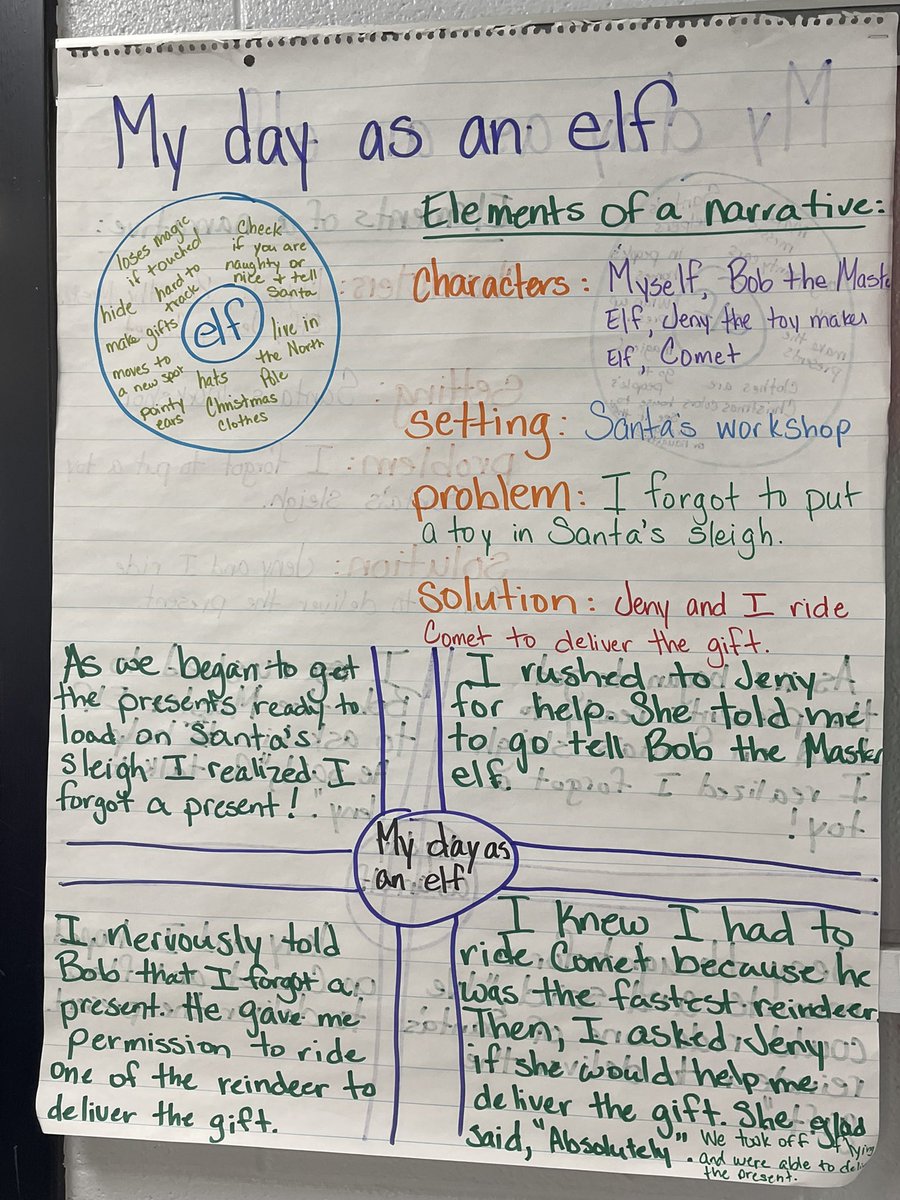 My day as an elf
loses magic
if touched
hard to
track
hide
make gifts
moves to
a new spot
pointy
ears
hats
Christmas
clothes
Check
if you are
naughty or
nice + tell
Santa
live in
the North
Pole
elf
Elements of a narrative:
Characters: Myself, Bob the Master
Elf, Jeny the toy maker
Elf, Comet
Setting: Santa's workshop
problem: I forgot to put
a toy in Santa's sleigh.
Solution: Jeny and I ride
Comet to deliver the gift.
As we began to get
the presents ready to
load on Santa's
sleigh I realized I
forgot a present!
I rushed to Jeny
for help. She told me
to go tell Bob the Master
elf.
My day as
an elf
I nervously told
Bob that I forgot a
present. He gave me
permission to ride
one of the reindeer to
deliver the gift.
I knew I had to
ride Comet because he
was the fastest reindeer.
Then, I asked Jeny
if she would help me
deliver the gift. She
said, "Absolutely". We took off flying
and were able to
the present.